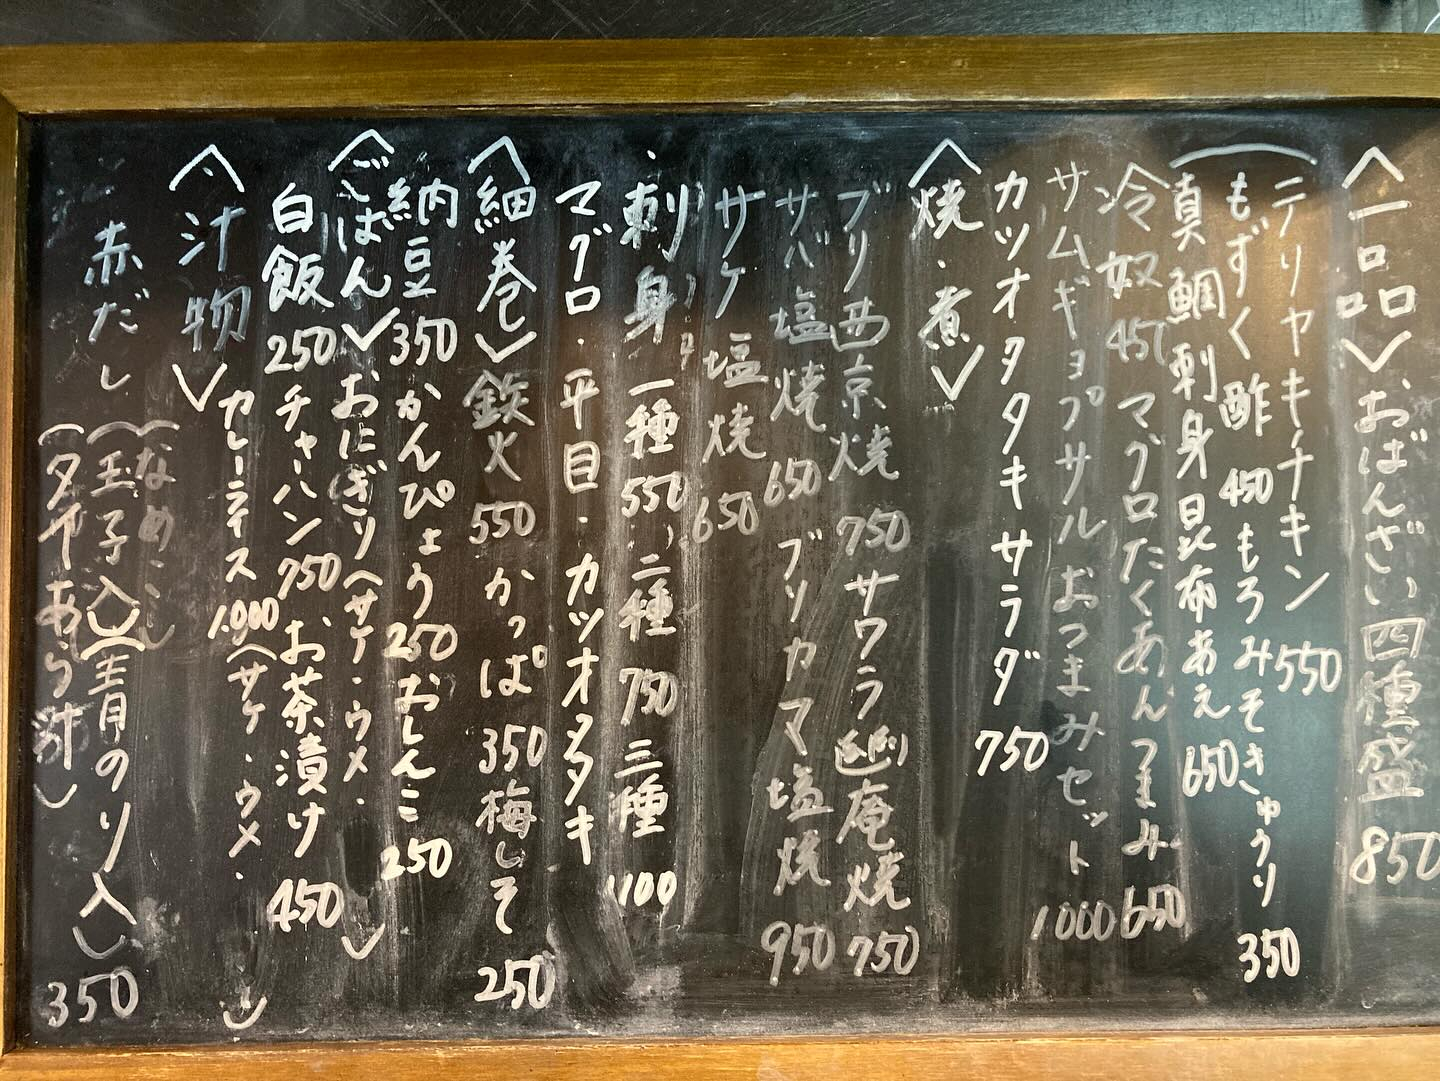 〈一品〉おばんざい四種盛 850
テリヤキチキン 550
もずく酢 450 もろみそきゅうり 350
真鯛刺身昆布あえ 650
冷奴 450 マグロたくあんつまみ 650
サムギョプサルおつまみセット 1000
カツオタタキサラダ 750
〈焼・煮〉
ブリ西京焼 750 サワラ幽庵焼 750
サバ塩焼 650 ブリカマ塩焼 950
サケ塩焼 650
刺身 一種 550 二種 750 三種 1100
マグロ・平目・カツオタタキ
〈細巻〉鉄火 550 かっぱ 350 梅しそ 250
納豆 350 かんぴょう 250 おしんこ 250
〈ごはん〉おにぎり(サケ・ウメ・ )
白飯 250 チャーハン 750 お茶漬け 450
(サケ・ウメ・ )
カレーライス 1,000
〈汁物〉
赤だし(なめこ)
(玉子入)(青のり入)
(タイあら汁) 350